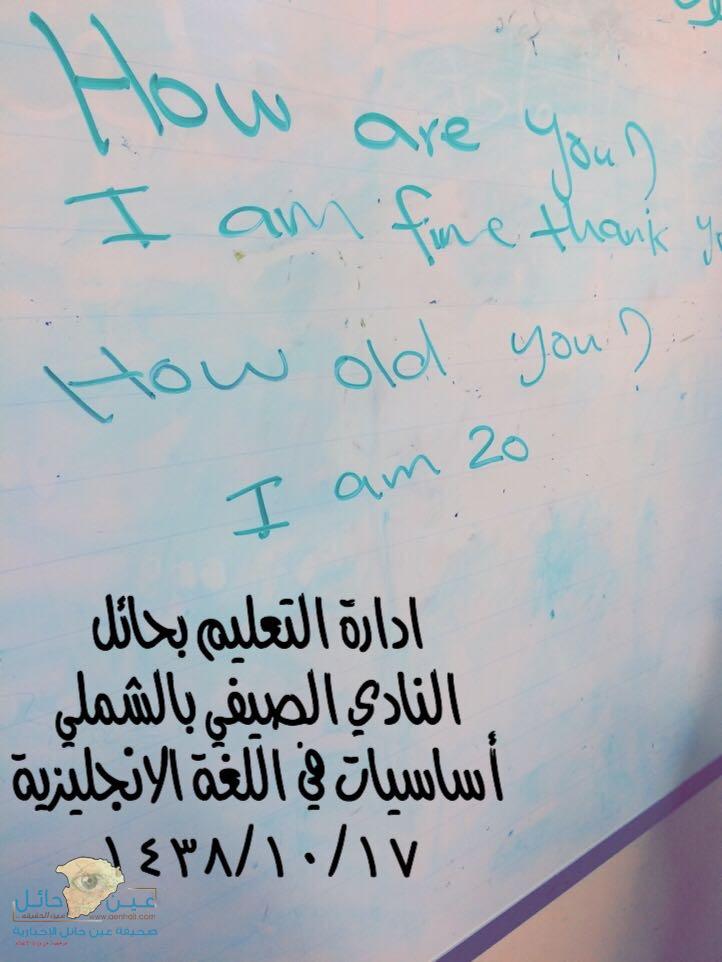 How are you?
I am fine thank
How old you?
I am 20
ادارة التعليم بحائل
النادي الصيفي بالشملي
أساسيات في اللغة الانجليزية
١٤٣٨/١٠/١٧
عين حائل
عين الحقيقة
www.aenhail.com
صحيفة عين حائل الإخبارية